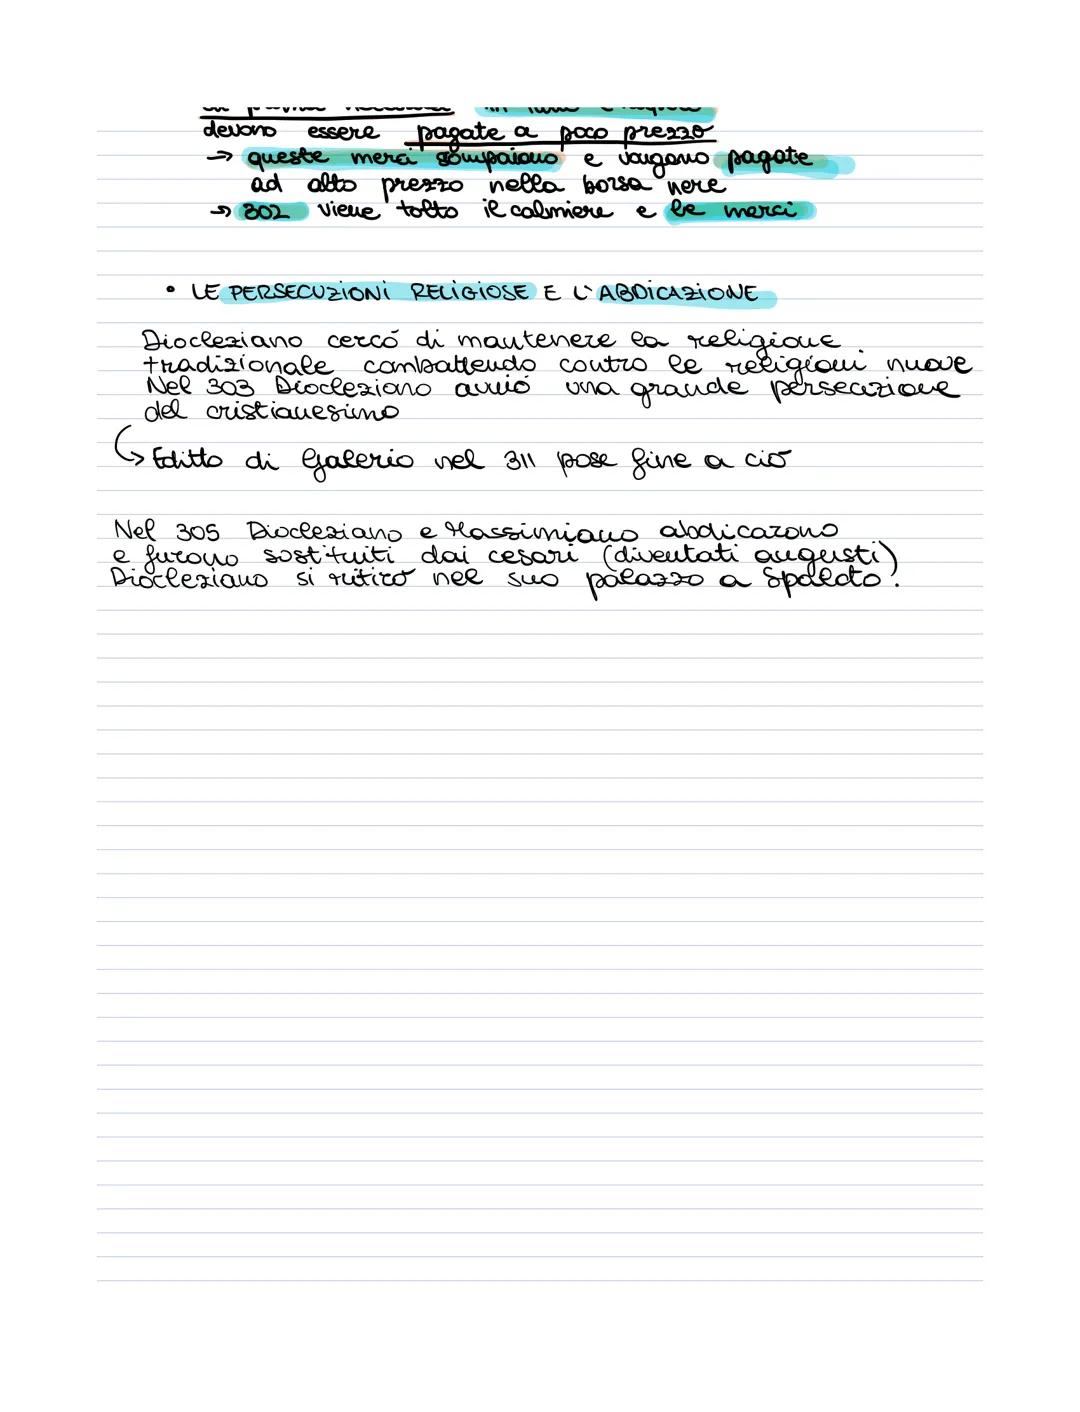 devono essere pagate a poco prezzo
→ queste merci scompaiono e vengono pagate
ad alto prezzo nella borsa nere
→ 302 viene tolto il calmiere e le merci
• LE PERSECUZIONI RELIGIOSE E L'ABDICAZIONE
Diocleziano cercó di mantenere la religione
tradizionale combattendo contro le religioni nuove
Nel 303 Diocleziano avvió una grande persecuzione
del cristianesimo
↳ Editto di Galerio nel 311 pose fine a ciò
Nel 305 Diocleziano e Massimiano abdicarono
e furono sostituiti dai cesari (diventati augusti)
Diocleziano si ritirò nel suo palazzo a Spalato.